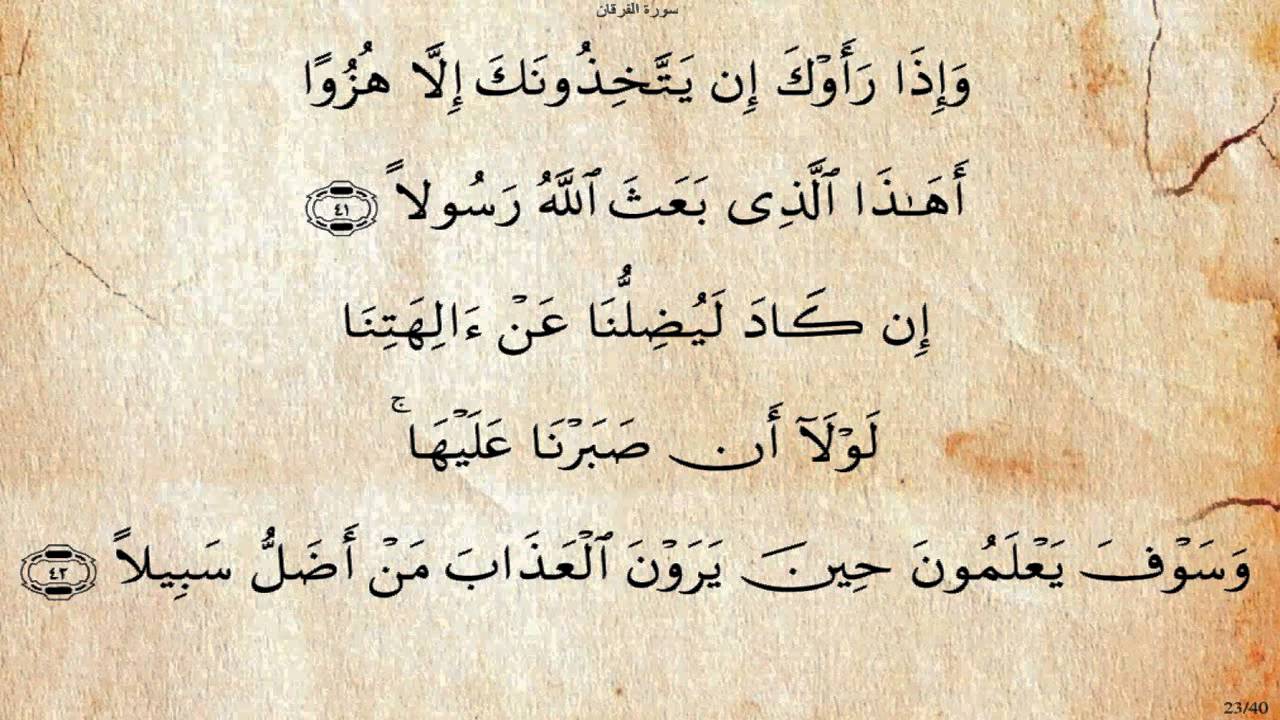 سورة الفرقان
وَإِذَا رَأَوۡكَ إِن يَتَّخِذُونَكَ إِلَّا هُزُوًا
أَهَٰذَا ٱلَّذِي بَعَثَ ٱللَّهُ رَسُولاً ٤١
إِن كَادَ لَيُضِلُّنَا عَنۡ ءَالِهَتِنَا
لَوۡلَآ أَن صَبَرۡنَا عَلَيۡهَاۚ
وَسَوۡفَ يَعۡلَمُونَ حِينَ يَرَوۡنَ ٱلۡعَذَابَ مَنۡ أَضَلُّ سَبِيلاً ٤٢
23/40